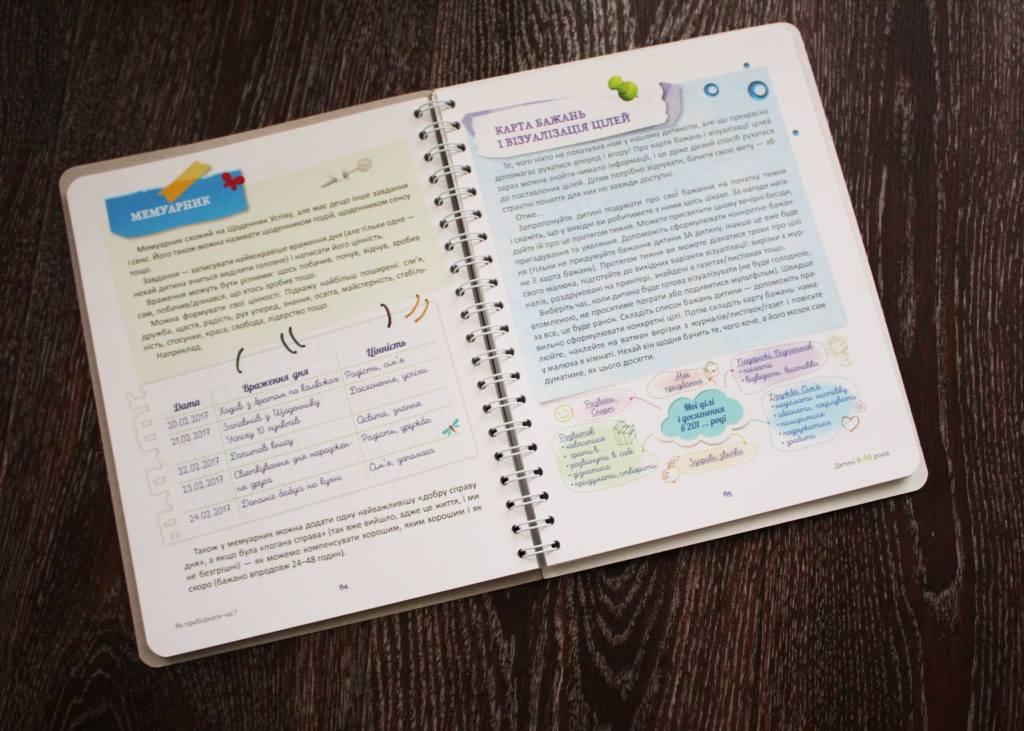 МЕМУАРНИК
Мемуарник схожий на Щоденник Успіху, але має дещо інше завдання
і сенс. Його також можна називати щоденником подій, щоденником сенсу
тощо.
Завдання — записувати найяскравіше враження дня (але тільки одне —
нехай дитина вчиться виділяти головне) і написати його цінність.
Враження можуть бути різними: щось побачив, почув, відчув, зробив
сам, побачив/дізнався, що хтось зробив тощо.
Можна формувати свої цінності. Підкажу найбільш поширені: сім'я,
дружба, щастя, радість, рух уперед, знання, освіта, майстерність, стабіль-
ність, стосунки, краса, свобода, лідерство тощо.
Наприклад.
Дата Враження дня Цінність
20.02.2017 Ходив з братом на ковзанки Радість, сім'я
21.02.2017 Заповнив у Щоденнику Досягнення, успіхи
Успіху 10 пунктів
22.02.2017 Дочитав книгу Освіта, знання
23.02.2017 Святкування дня народжен- Радість, дружба
ня друга
24.02.2017 Допоміг бабусі на кухні Сім'я, допомога
Також у мемуарник можна додати одну найважливішу «добру справу
дня», а якщо була «погана справа» (так вже вийшло, адже це життя, і ми
не безгрішні) — як можемо компенсувати хорошим, яким хорошим і як
скоро (бажано впродовж 24–48 годин).
64
Як приборкати час?
КАРТА БАЖАНЬ
І ВІЗУАЛІЗАЦІЯ ЦІЛЕЙ
Те, чого ніхто не показував нам у нашому дитинстві, але що прекрасно
допомагає рухатися вперед і вгору! Про карти бажань і візуалізації цілей
зараз можна знайти чимало інформації, і це дуже дієвий спосіб рухатися
до поставлених цілей. Дітям потрібно відчувати, бачити свою мету — аб-
страктні поняття для них не завжди доступні.
Отже...
Запропонуйте дитині подумати про свої бажання на початку тижня
і скажіть, що у вихідні ви робитимете з ними щось цікаве. За нагоди нага-
дуйте їй про це протягом тижня. Можете присвятити цьому вечірні бесіди,
пригадування та уявлення. Допоможіть сформулювати конкретне бажан-
ня (тільки не придумуйте бажання дитини ЗА дитину, інакше це вже буде
не її карта бажань). Протягом тижня ви можете дізнатися трохи про цілі
свого малюка, підготуйте до вихідних варіанти візуалізації: вирізки з жур-
налів, роздруковані на принтері, знайдені в газетах/листівках тощо.
Виберіть час, коли дитина буде готова візуалізувати (не буде голодною,
втомленою, не проситиме пограти або подивитися мультфільм). Швидше
за все, це буде ранок. Складіть список бажань дитини — допоможіть пра-
вильно сформулювати конкретні цілі. Потім складіть карту бажань: нама-
люйте, наклейте на ватман вирізки з журналів/листівок/газет і повісьте
у малюка в кімнаті. Нехай він щодня бачить те, чого хоче, а його мозок сам
думатиме, як цього досягти.
Розваги.
Спорт
Мої
придбання
Подорожі. Відпочинок
• поїхати
• відвідати виставки
Мої цілі
і досягнення
в 201 ... році
Розвиток
• навчитися
• грати в ...
• розвинути в собі
• дізнатися
• придумати, створити
Здорові звички
Дружба. Сім'я
• надіслати листівку
• обійняти, поцілувати
• помиритися
• подружитися
• зробити
Дитині 6–10 років
65